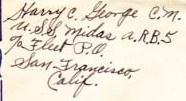 Harry C. George C.M.
U.S.S Midas A.R.B. 5
c/o Fleet P.O.
San Francisco,
Calif.